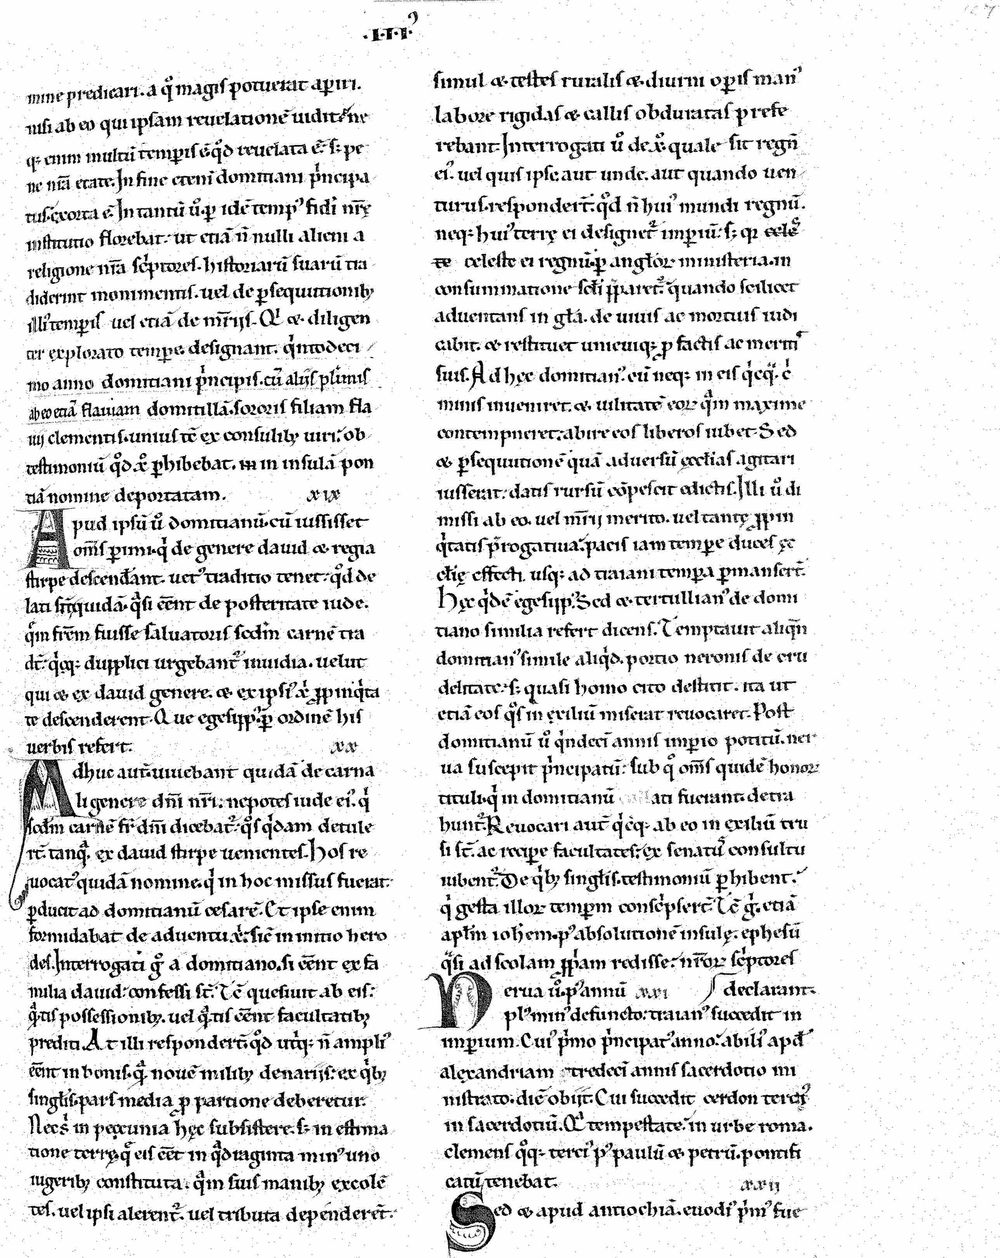 .III.
mine predicari. a q̊ magis potuerat aꝑiri.
nisi ab eo qui ipsam reuelationē uidit; ne
q; enim multū tempis ē q̊d reuelata ē. s; pe
ne nr̄a etate. In fine eteni domitiani p̄ncipa
tus. exorta ē. In tantū ů. ꝑ idē temp᾽ fidi nr̄ę
institutio florebat. ut etiā n̄ nulli alieni a
religione nr̄a sc̄ptores. historiarū suarū tra
diderint monimentis. uel de ꝑsequutionib;
illi᾽ tempis uel etiā de mr̄ijs. Qi & diligen
ter explorato tempe. designant. q̄ntodeci
mo anno domitiani p̄ncipis. cū alijs plīmis
ab eo etiā flauiam domitillā. sororis filiam fla
uij clementis. unius tē ex consulib; uiri. ob
testimoniū q̊d x̄ ꝑhibebat. in insulā pon
tiā nomine deportatam. xix
Apud ipsū ů domitianū. cū iussisset
om̄s ꝑimi. q̄ de genere dauid & regia
stirpe descendant. uet᾽ traditio tenet. q̊d de
lati s̄t quidā. q̄si eēnt de posteritate iude.
q̄m frēm fuisse saluatoris scdm̄ carnē tra
dt̄. q̄q; dupplici urgebant᾽ inuidia. uelut
qui & ex dauid genere. & ex ipsi᾽ x̄ ꝓpinq̄ta
te descenderent. Que egesipp᾽ ꝑ ordinē his
uerbis refert. xx
Adhuc aut̄. uiuebant quidā de carna
li genere dn̄i nr̄i. nepotes iude ei᾽. q̄
scdm̄ carnē fr̄ dn̄i dicebat᾽. q̊s q̄dam detule
rt̄. tanq̄. ex dauid stirpe uenientes. Hos re
uocat᾽ quidā nomine. q̄ in hoc missus fuerat.
ꝑducit ad domitianū cesarē. Et ipse enim
formidabat de aduentu x̄. sic̄ in initio hero
des. Interrogati g̊ a domitiano. si eēnt ex fa
milia dauid. confessi s̄t. Tē quesiuit ab eis.
q̄tis possessionib;. uel q̄tis eēnt facultatib;
prediti. At illi respondert̄. q̊d utq; n̄ ampli᾽
eēnt in bonis. q̄ nouē milib; denarijs. ex q̄b;
singlis. pars media ꝓ partione deberetur.
Nec s̄ in pecunia hęc subsistere. s; in estima
tione terrę. q̄ eis eēt in q̄draginta min᾽ uno
iugerib; constituta. q̄m suis manib; excolē
tes. uel ipsi alerent᾽. uel tributa dependerēt.
simul & testes ruralis & diurni opis man᾽
labore rigidas & callis obduratas prefe
rebant. Interrogati ů de x̄. quale sit regn̄
ei᾽. uel quis ipse. aut unde. aut quando uen
turus. respondert̄. q̊d n̄ hui᾽ mundi regnū.
neq; hui᾽ terrę ei designet᾽ imperiū. s; qr celes
te celeste ei regnū. ꝑ anglor̄ ministeria. in
consummatione scl̄i ꝓparet᾽. quando scilicet
aduentans in gl̄a. de uiuis ac mortuis iudi
cabit. & restituet unicuiq; ꝓ factis ac meritis
suis. Ad hęc domitian᾽. cū neq; in eis q̄cq̄ c̄
minis inueniret. & uilitatē eor̄ q̄m maxime
contempneret. abire eos liberos iubet. Sed
& ꝑsequutionē quā aduersū ęcclias agitari
iusserat. datis rursū cōpescit edictis. Illi ů di
missi ab eo. uel mr̄ij merito. uel tantę ꝓpin
q̄tatis p̄rogatiua. pacis iam tempe duces ęc
clię effecti. usq; ad traiani tempa ꝑmansert̄.
Hęc q̄dē egesipp᾽. Sed & tertullian᾽ de domi
tiano similia refert dicens. Temptauit aliqn̄
domitian᾽ simile aliq̊d. portio neronis de cru
delitate. s; quasi homo cito destitit. ita ut
etiā eos q̊s in exiliū miserat reuocaret. Post
domitianū ů q̄ndeci annis imperio potitū. ner
ua suscepit p̄ncipatū. sub q̊ om̄s quidē honor̄
tituli. q̄ in domitianū lati fuerant. detra
hunt᾽. Reuocari aut̄ q̄cq; ab eo in exiliū tru
si s̄t. ac recipe facultates. ex senat᾽ consultu
iubent᾽. De q̄b; singlis. testimoniū ꝑhibent.
q̄ gesta illor̄ temporum consc̄psert̄. Tē g̊. etiā
apl̄m ioh̄em. p᾽ absolutionē insulę. ephesū
q̄si ad scolam ꝓpam redisse. nr̄or̄ sc̄ptores
Nerua ů. p᾽ annū xxi declarant.
pl᾽ min᾽ defuncto. traian᾽ succedit in
imperium. Cui᾽ p̄mo p̄ncipat᾽ anno. abili᾽ apd᾽
alexandriam tredeci annis sacerdotio mi
nistrato. diē obijt. Cui succedit cerdon terci᾽
in sacerdotiū. Qi tempestate. in urbe roma.
clemens q̊q; terci᾽ p᾽ paulū & petrū. pontifi
catū tenebat. xxij
Sed & apud antiochiā. euodi᾽ p̄m᾽ fue